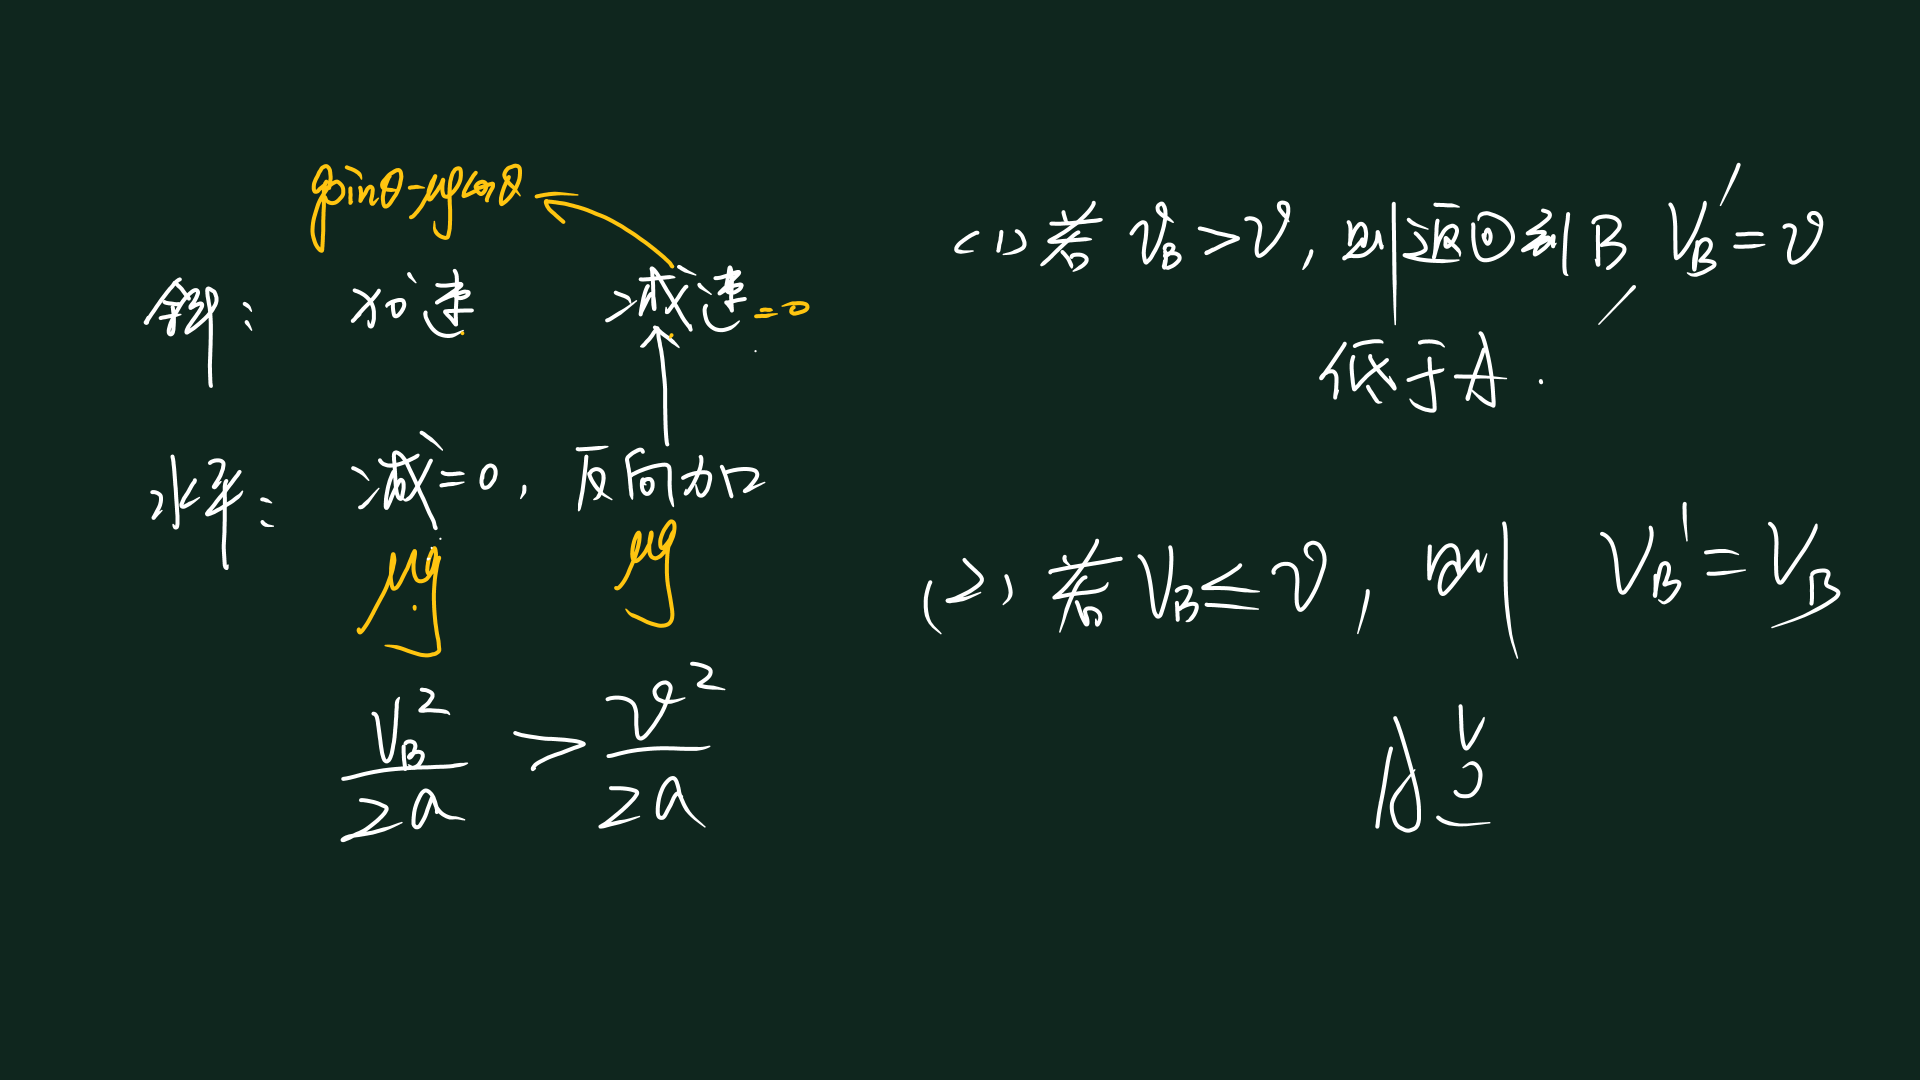 gsinθ-μgcosθ
斜: 加速 减速=0
水平: 减=0, 反向加
μg μg
V_B²/2a > v²/2a
(1) 若 v_B>v, 则返回到B, V_B'=v
低于A.
(2) 若 V_B≤v, 则 V_B'=V_B
A